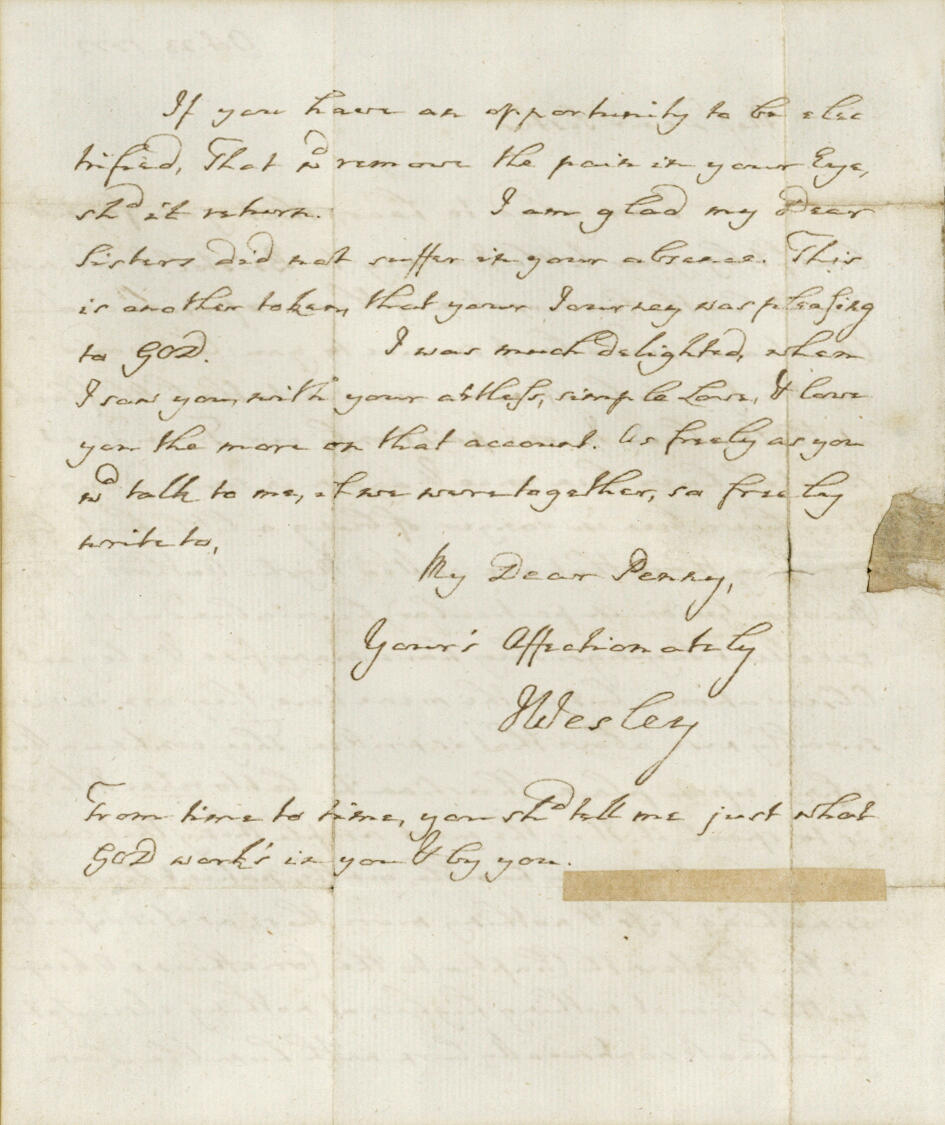 If you have an opportunity to be elec
trified, That wd remove the pain in your Eye,
shd it return. I am glad my Dear
Sisters did not suffer in your absence. This
is another token, that your Journey was pleasing
to GOD. I was much delighted, when
I saw you, with your artless, simple Love, & love
you the more on that account. As freely as you
wd talk to me, if we were together, so freely
write to,
My Dear Penny,
Your's Affectionately
JWesley
From time to time, you shd tell me just what
GOD work's in you & by you.